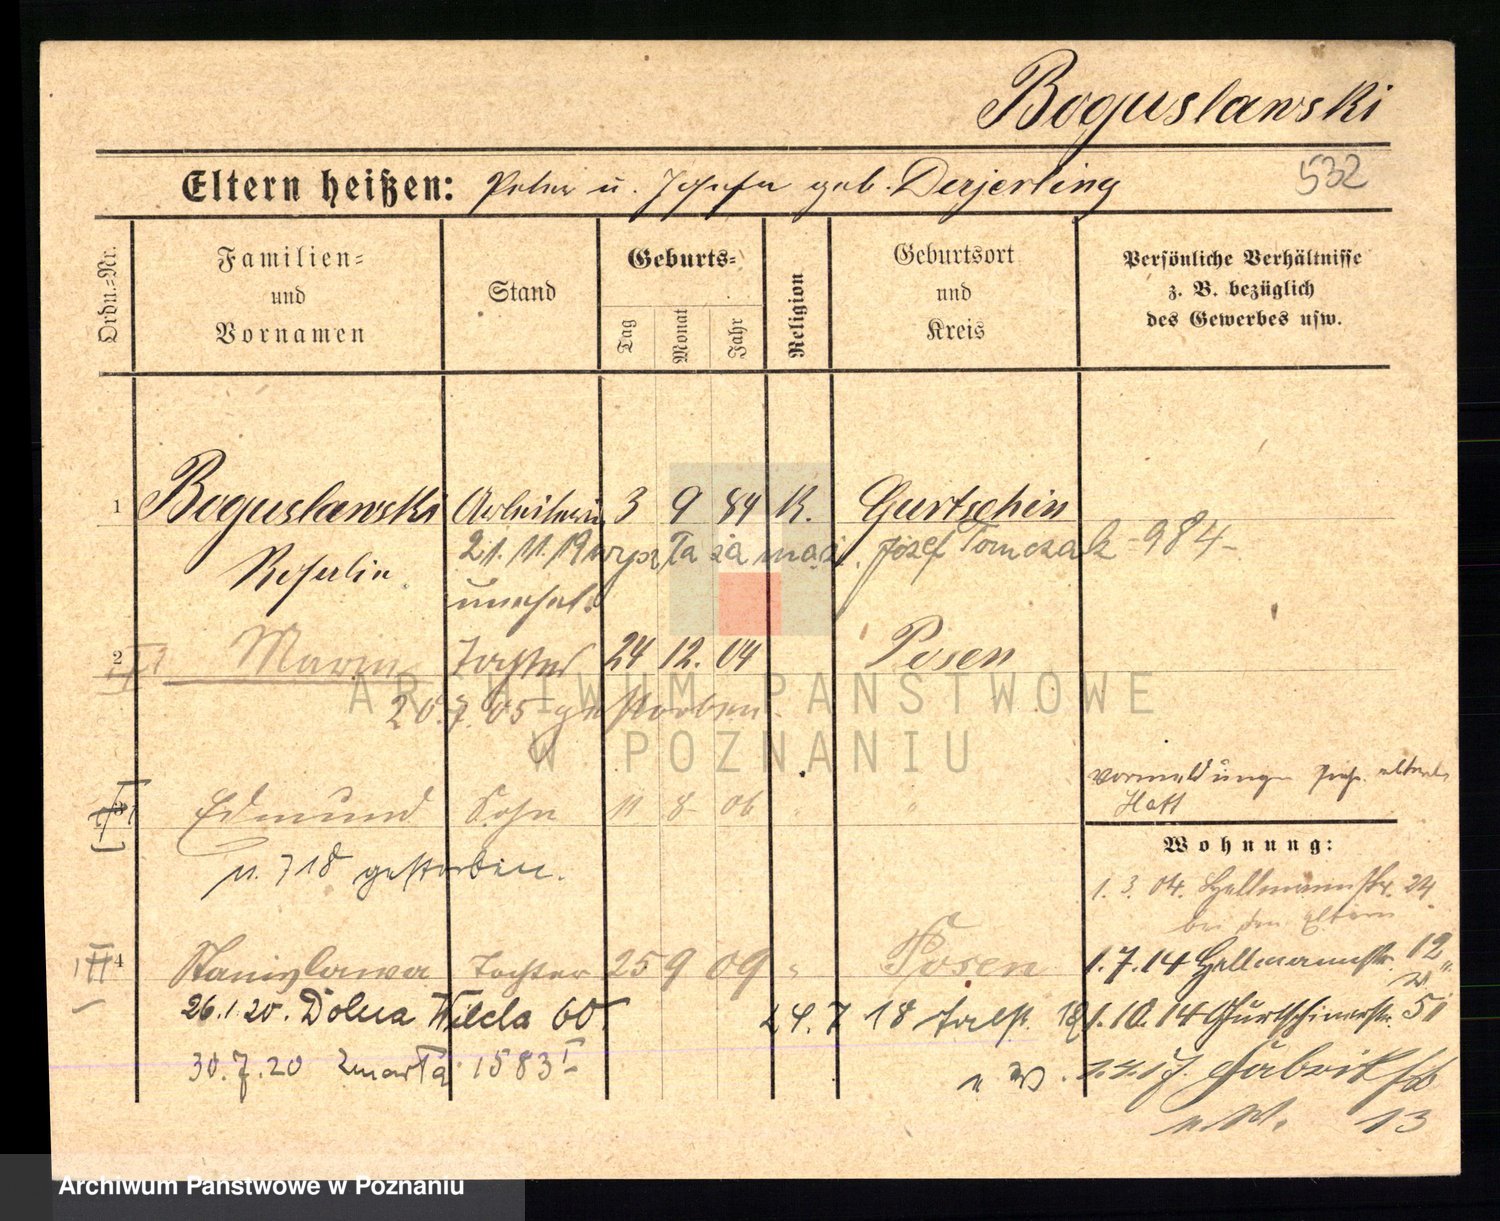 Boguslawski
Eltern heißen: Peter u. Josefa geb. Derjerling
532
Ordn.-Nr.
Familien-
und
Vornamen
Stand
Geburts-
Tag
Monat
Jahr
Religion
Geburtsort
und
Kreis
Persönliche Verhältnisse
z. B. bezüglich
des Gewerbes usw.
1 Boguslawski Arbeiterin 3 9 84 K. Gurtschin
21.11.19 wyszła za mąż. Józef Tomczak -984-
Roselia
unehel.
2 Maria Tochter 24 12. 04 Posen
20.7.05 gestorben.
ARCHIWUM PAŃSTWOWE
W POZNANIU
Edmund Sohn 11 8 06 "
gestorben.
Wohnung:
1.3.04. Hellmannstr. 24.
bei den Eltern
4 Stanislawa Tochter 25 9 09 " Posen
1.7.14 Hellmannstr. 12
26.1.20. Dolna Wilda 60
24.7 18
1.10.14 Gurtschinerstr. 51
30.7.20 zmarła 1583 I
Fabrikstr
u. W. 13
Archiwum Państwowe w Poznaniu